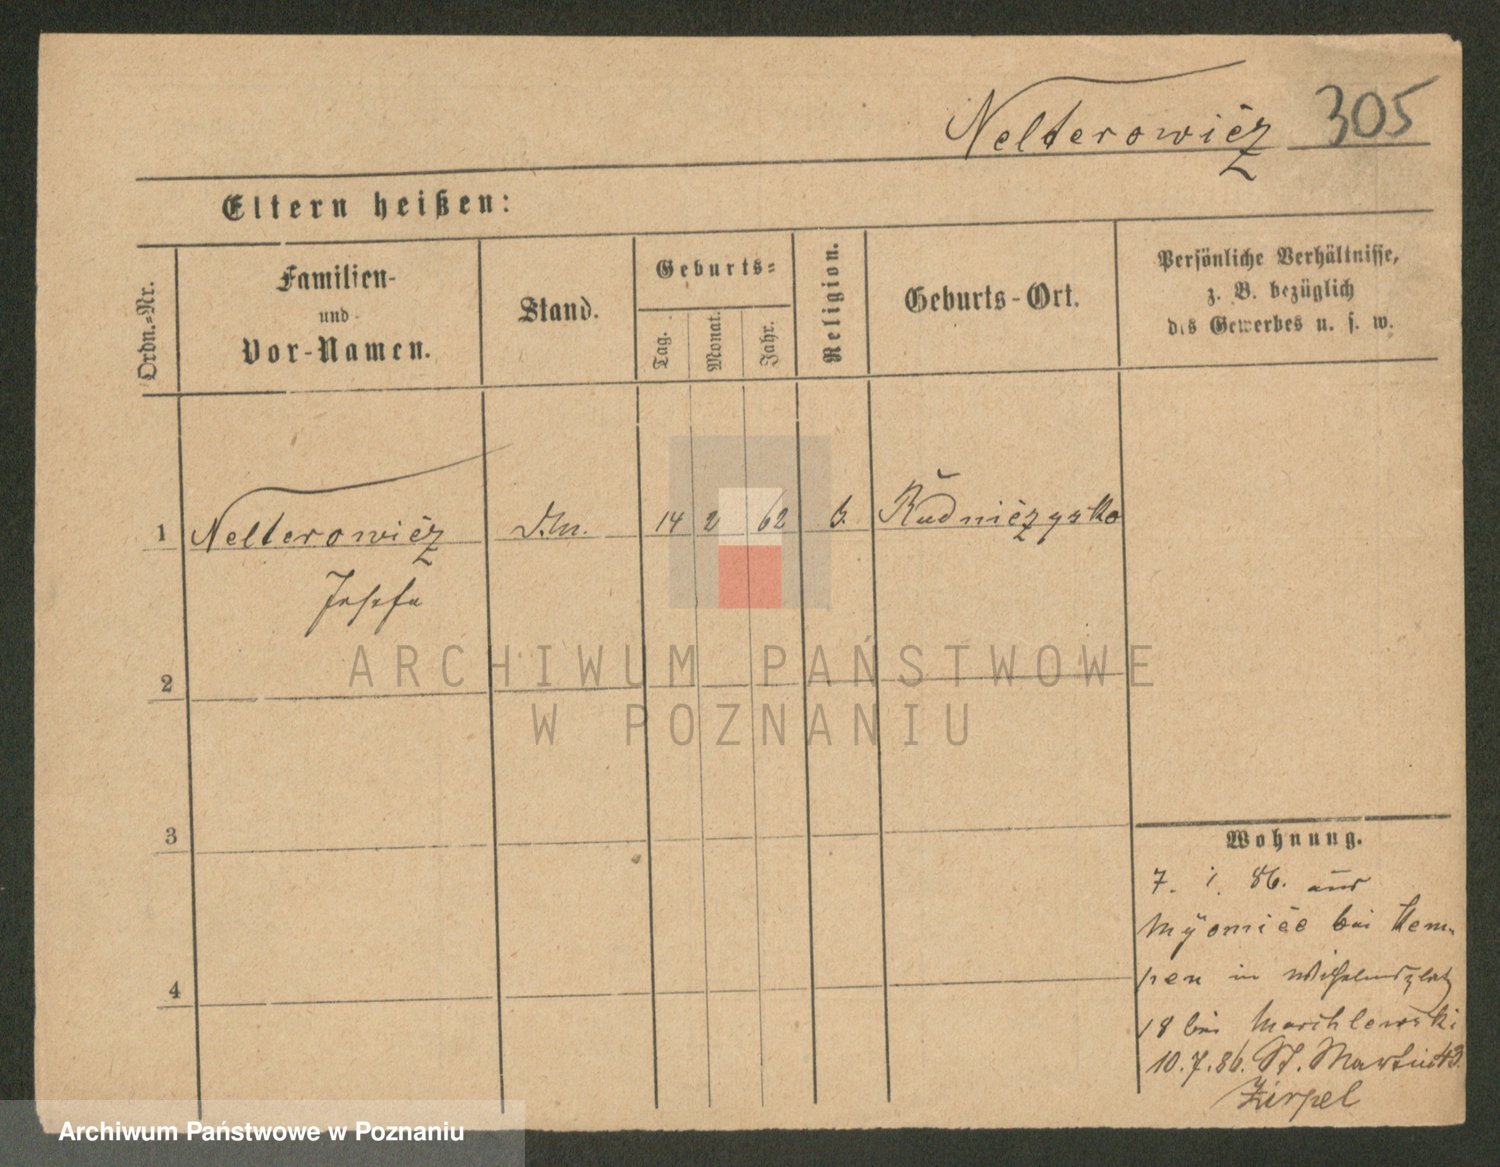 Nelterowicz 305
Eltern heißen:
Ordn.=Nr.
Familien-
und
Vor-Namen.
Stand.
Geburts=
Tag.
Monat.
Jahr.
Religion.
Geburts-Ort.
Persönliche Verhältnisse,
z. B. bezüglich
des Gewerbes u. s. w.
1 Nelterowicz 14 2 62 Rudniczysko
Josefa
ARCHIWUM PAŃSTWOWE
W POZNANIU
2
3
4
Wohnung.
7. 1. 86. aus
Myomice bei Kem-
pen in Wilhelmsplatz
18 bei Marchlewski
10.7.86. St. Martin 43
Zirpel
Archiwum Państwowe w Poznaniu